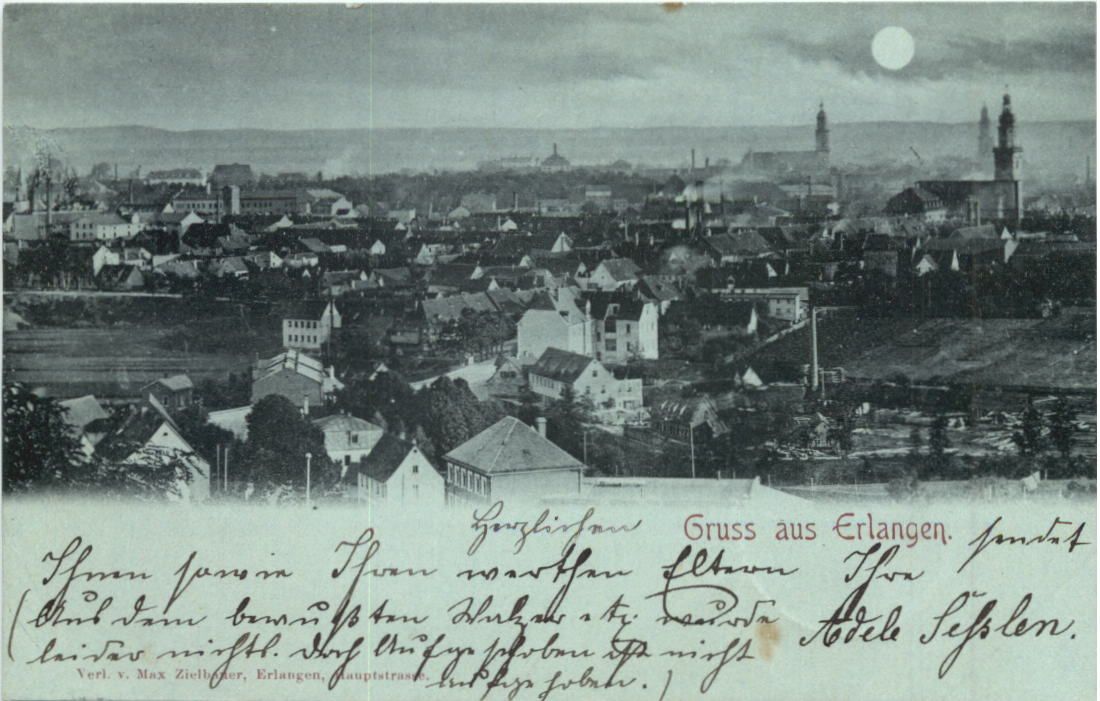 Herzlichen Gruss aus Erlangen. sendet
Ihnen sowie Ihren werthen Eltern Ihre
(Aus dem bewußten Walzer etz. wurde Adele
leider nichts. doch Aufgeschoben ist nicht
aufgehoben.)
Verl. v. Max Zielbauer, Erlangen, Hauptstrasse.